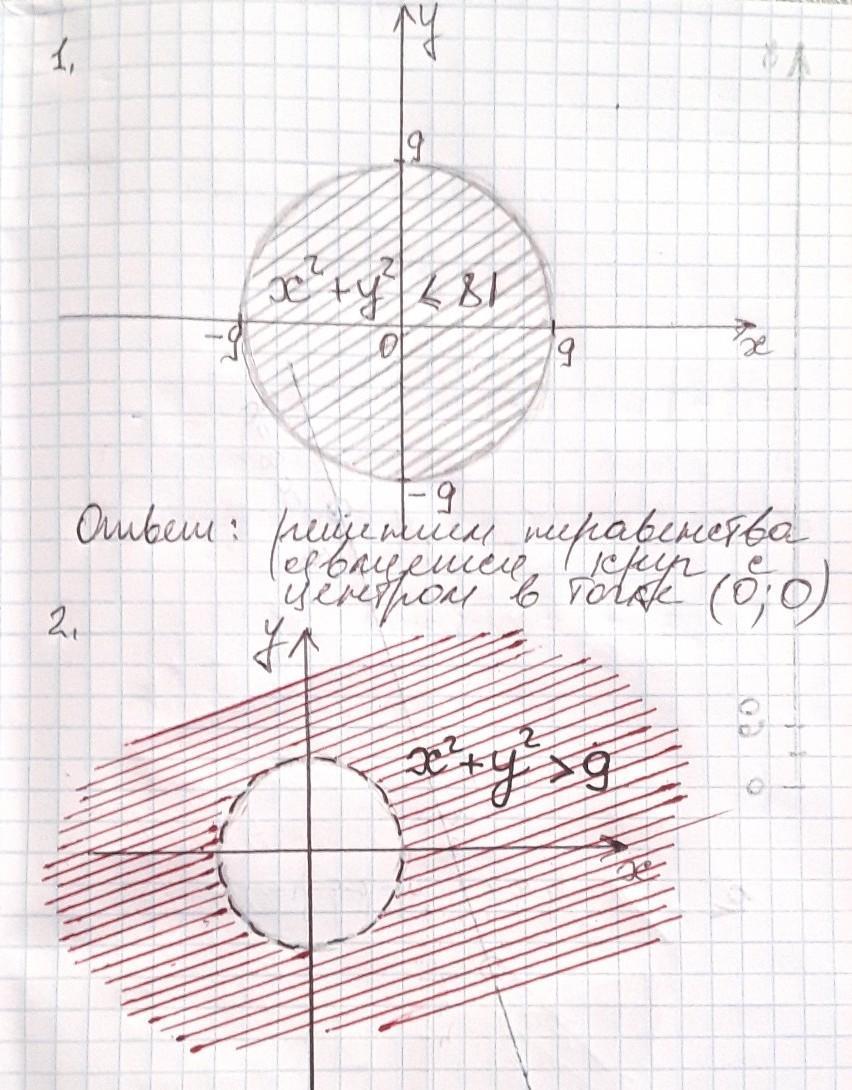 1.
y
9
x² + y² ≤ 81
-9 0 9 x
-9
Ответ: решением неравенства
является круг с
центром в точке (0; 0)
2.
y
x² + y² > 9
x